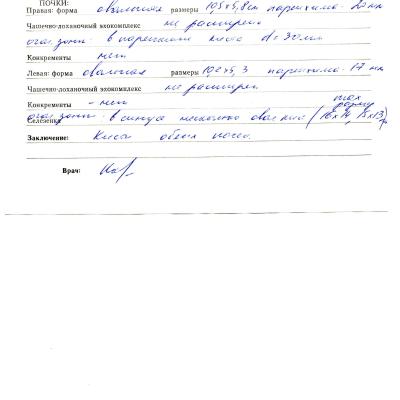 ПОЧКИ:
Правая: форма овальная размеры 105х5,8см паренхима - 20 мм
Чашечно-лоханочный эхокомплекс не расширен
в паренхиме киста d = 30мм
Конкременты нет
Левая: форма овальная размеры 102х5,3 паренхима - 17 мм
Чашечно-лоханочный эхокомплекс не расширен
Конкременты - нет
Селезенка в синусе несколько
Заключение: Кисты обеих почек.
Врач: